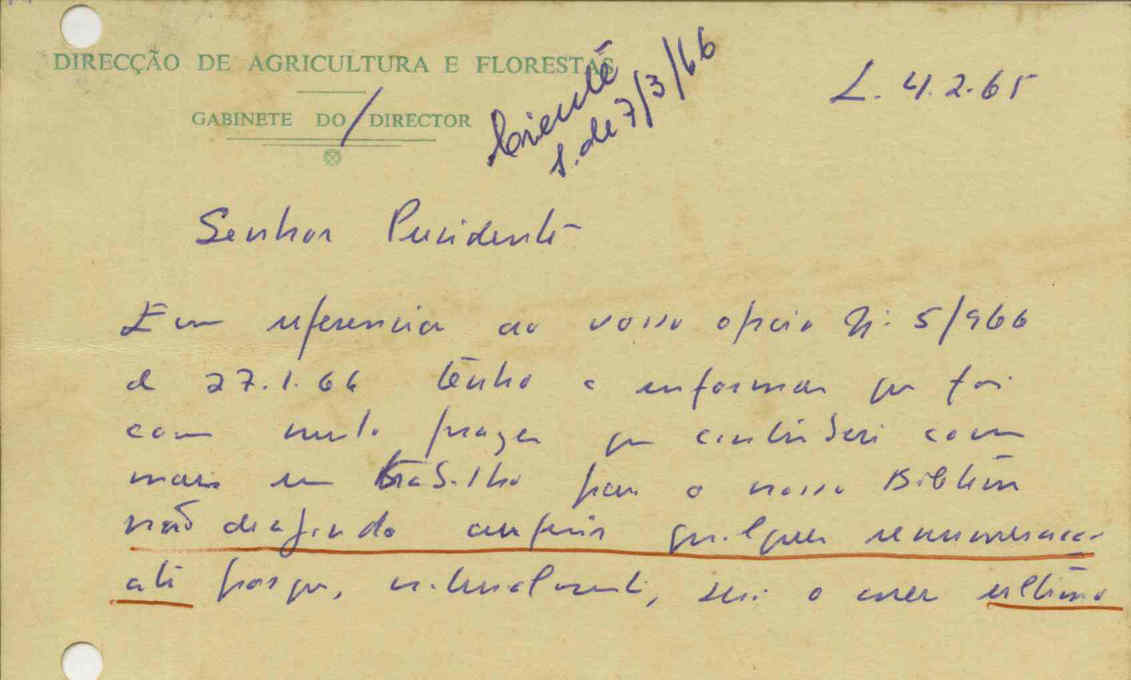 DIRECÇÃO DE AGRICULTURA E FLORESTAS
GABINETE DO DIRECTOR
Ciente
s. de 7/3/66
L. 4.2.65
Senhor Presidente
Em referencia ao vosso oficio Nº 5/966
de 27.1.66 tenho a informar que foi
com muito prazer que contribui com
mais um trabalho para o nosso Boletim
não desejando auferir qualquer remuneração
até porque, naturalmente, será o meu último